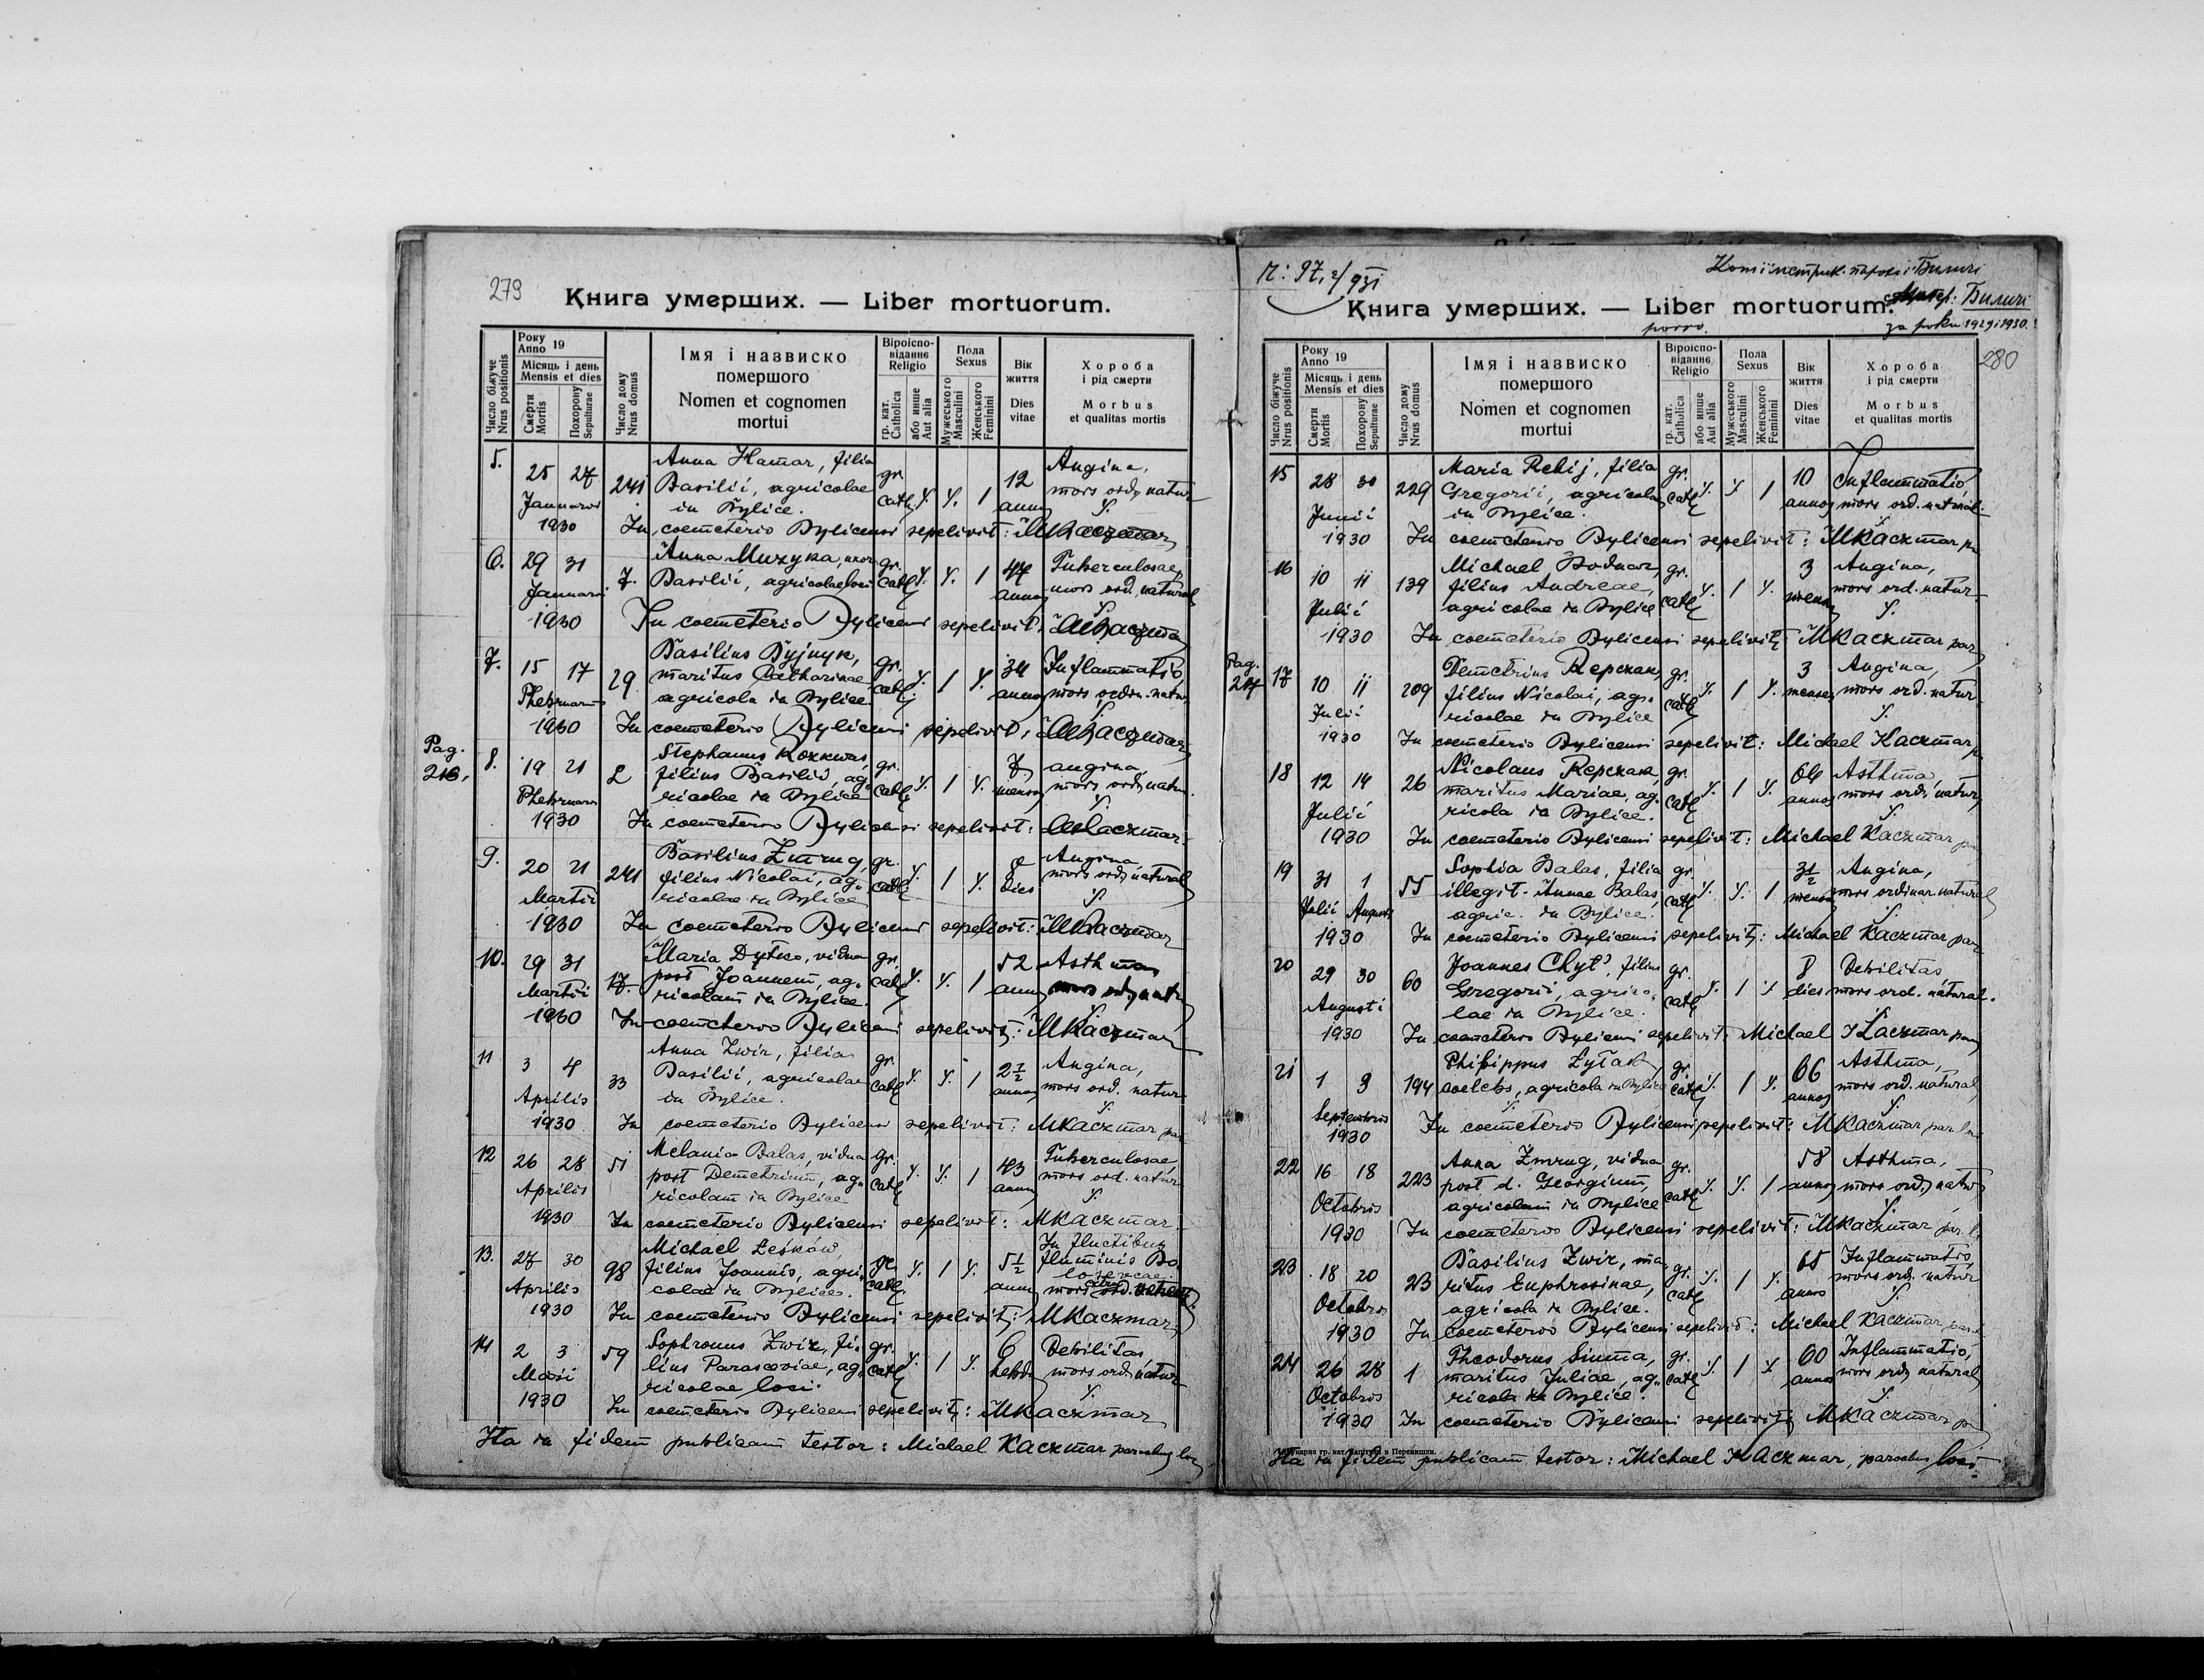 279
Книга умерших. — Liber mortuorum.
Число біжуче Nrus positionis
Року Anno 19
Місяць і день Mensis et dies
Смерти Mortis
Похорону Sepulturae
Число дому Nrus domus
Імя і назвиско помершого
Nomen et cognomen mortui
Віроіспо-віданнє Religio
гр. кат. Catholica
або инше Aut alia
Пола Sexus
Мужеського Masculini
Женського Feminini
Вік життя
Dies vitae
Хороба і рід смерти
Morbus et qualitas mortis
5. 25 27 Januarii 1930 241
Anna Hamar, filia
Basilii, agricolae
in Bylice.
gr. cath 1 12
Angina,
mors ord. natur
In coemeterio Bylicensi sepelivit: MKaczmar
6. 29 31 Januarii 1930 7.
Anna Muzyka, uxor
Basilii, agricolae loci
gr. cath 1 47
Tuberculosae,
mors ord. natural
In coemeterio Bylicensi sepelivit: MKaczmar
7. 15 17 Phebruarii 1930 29
Basilius Byjnyk,
maritus Catharinae
agricola in Bylice
gr. cath 1 34
Inflammatio,
mors ordin. natur
In coemeterio Bylicensi sepelivit: MKaczmar
Pag. 216.
8. 19 21 Phebruarii 1930 2
Stephanus
filius Basilii, ag-
ricolae in Bylice
gr. cath 1 7
angina
mors ord. natur.
In coemeterio Bylicensi sepelivit: MKaczmar.
9. 20 21 Martii 1930 241
Basilius Zmrug,
filius Nicolai, ag-
ricolae in Bylice
gr. cath 1 dies
Angina,
mors ord. natural
In coemeterio Bylicensi sepelivit: MKaczmar
10. 29 31 Martii 1930 17.
Maria Dytko, vidua
post Joannem, ag-
ricolam in Bylice.
gr. cath 1 52
Asthma
mors ord. natur
In coemeterio Bylicensi sepelivit: MKaczmar
11 3 4 Aprilis 1930 33
Anna Zwir, filia
Basilii, agricolae
in Bylice.
gr. cath 1 2½
Angina,
mors ord. natur
In coemeterio Bylicensi sepelivit: MKaczmar par
12 26 28 Aprilis 1930 51
Melania Balas, vidua
post Demetrium, ag-
ricolam in Bylice
gr. cath 1 43
Tuberculosae
mors ord. natur
In coemeterio Bylicensi sepelivit: MKaczmar.
13. 27 30 Aprilis 1930 98
Michael Leśków,
filius Joannis, agri-
colae in Bylice.
gr. cath 1 5½
In fluctibus
fluminis
mors
In coemeterio Bylicensi sepelivit: MKaczmar
14 2 3 Maii 1930 59
Sophronus Zwir, fi-
lius Parasceviae, ag-
ricolae loci.
gr. cath 1 6 hebd
Debilitas,
mors ord. natur
In coemeterio Bylicensi sepelivit: MKaczmar
Ita in fidem publicam testor: Michael Kaczmar parochus loci
Книга умерших. — Liber mortuorum.
porro.
за роки 1929 і 1930.
280
Число біжуче Nrus positionis
Року Anno 19
Місяць і день Mensis et dies
Смерти Mortis
Похорону Sepulturae
Число дому Nrus domus
Імя і назвиско помершого
Nomen et cognomen mortui
Віроіспо-віданнє Religio
гр. кат. Catholica
або инше Aut alia
Пола Sexus
Мужеського Masculini
Женського Feminini
Вік життя
Dies vitae
Хороба і рід смерти
Morbus et qualitas mortis
15 28 30 Junii 1930 229
Maria Rebij, filia
Gregorii, agricolae
in Bylice.
gr. cath 1 10 annos
Inflammatio
mors ord. natural.
In coemeterio Bylicensi sepelivit: MKaczmar
16 10 11 Julii 1930 139
Michael Bodnar,
filius Andreae,
agricolae in Bylice
gr. cath 1 3
Angina,
mors ord. natur.
In coemeterio Bylicensi sepelivit: MKaczmar par
Pag. 217
17 10 11 Julii 1930 209
Demetrius Repczak,
filius Nicolai, ag-
ricolae in Bylice
gr. cath 1 3 menses
Angina,
mors ord. natur
In coemeterio Bylicensi sepelivit: Michael Kaczmar
18 12 14 Julii 1930 26
Nicolaus Repczak,
maritus Mariae, ag-
ricola in Bylice.
gr. cath 1 annos
Asthma,
mors ord. natur
In coemeterio Bylicensi sepelivit: Michael Kaczmar
19 31 1 Julii Augusti 1930 55
Sophia Balas, filia
illegit. Annae Balas,
agric. in Bylice.
gr. cath 1 3½
Angina,
mors ordinar. natural
In coemeterio Bylicensi sepelivit: Michael Kaczmar par
20 29 30 Augusti 1930 60
Joannes Chyt', filius
Gregorii, agrico-
lae in Bylice.
gr. cath 1 8 dies
Debilitas,
mors ord. natural.
In coemeterio Bylicensi sepelivit: Michael Kaczmar par
21 1 3 Septembris 1930 194
Philippus Zytak,
coelebs, agricola in Bylice
gr. cath 1 66 annos
Asthma,
mors ord. natural
In coemeterio Bylicensi sepelivit: MKaczmar par loci
22 16 18 Octobris 1930 223
Anna Zmrug, vidua
post d. Georgium,
agricolam in Bylice
gr. cath 1 58 annos
Asthma,
mors ord. natur
In coemeterio Bylicensi sepelivit: MKaczmar par. l.
23 18 20 Octobris 1930 23
Basilius Zwir, ma-
ritus Euphrosinae,
agricola in Bylice.
gr. cath 1 65 annos
Inflammatio,
mors ord. natur
In coemeterio Bylicensi sepelivit: Michael Kaczmar par.
24 26 28 Octobris 1930 1
Theodorus Sinma,
maritus Juliae, ag-
ricola in Bylice.
gr. cath 1 60 annos
Inflammatio,
mors ord. natural
In coemeterio Bylicensi sepelivit MKaczmar p
Ita in fidem publicam testor: Michael Kaczmar, parochus loci.